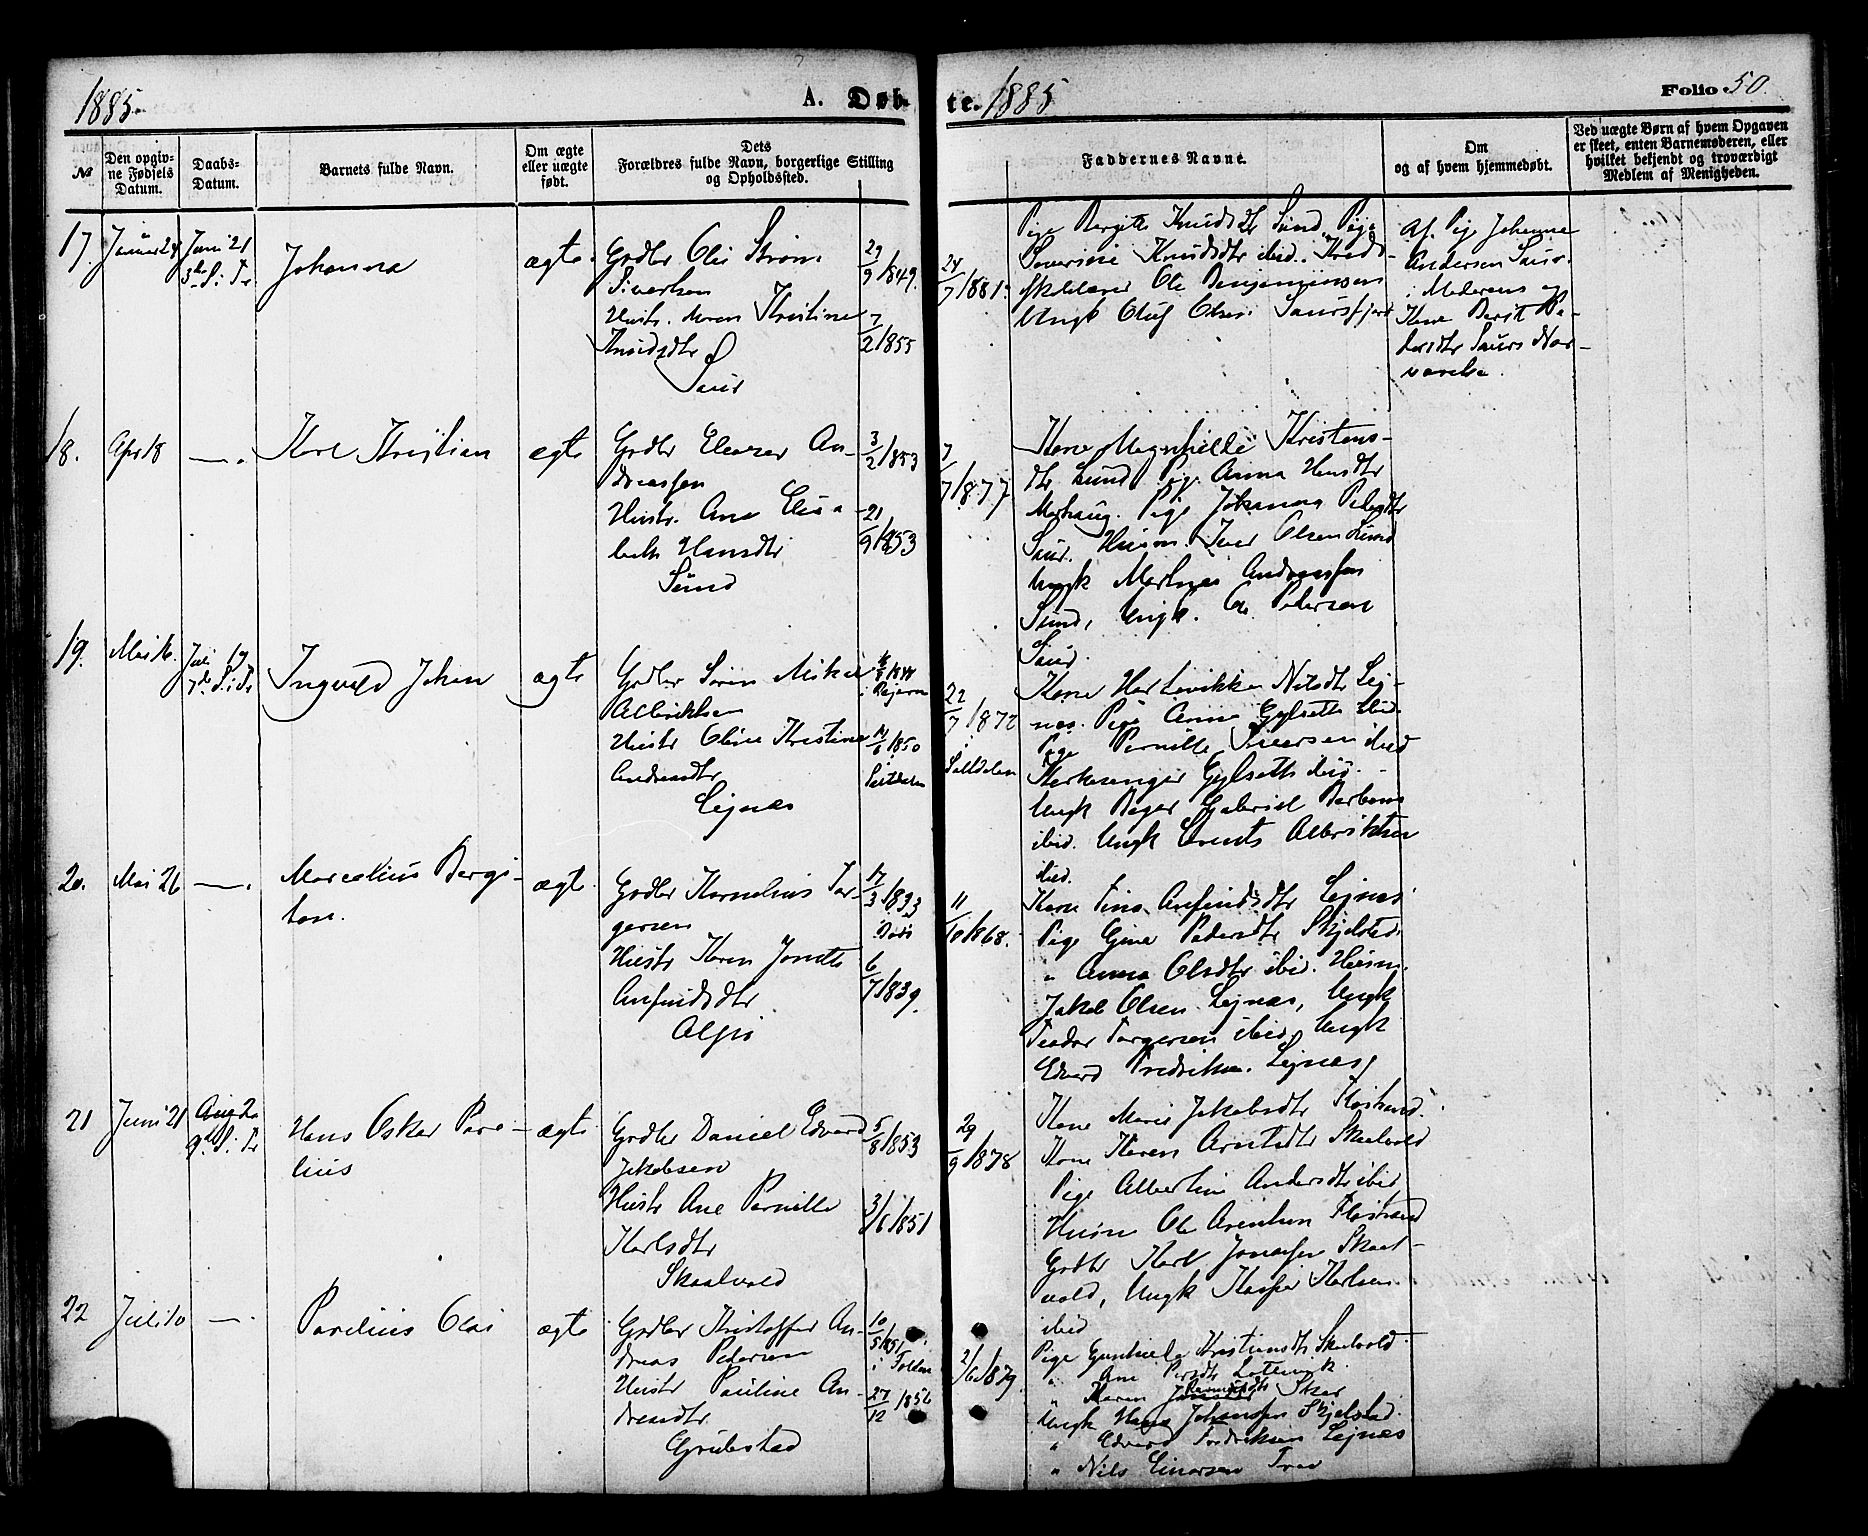 1885.
A. Døb-
te. 1885
Folio 50.
№
Den opgiv-
ne Fødsels
Datum.
Daabs-
Datum.
Barnets fulde Navn.
Om ægte
eller uægte
født.
Dets
Forældres fulde Navn, borgerlige Stilling
og Opholdssted.
Faddernes Navne.
Om
og af hvem hjemmedøbt.
Ved uægte Børn af hvem Opgaven
er skeet, enten Barnemoderen, eller
hvilket bekjendt og troværdigt
Medlem af Menigheden.
17.
Januar 24
Juni 21
3de S. Tr
Johanna
ægte.
Grdbr Ole Strøm
Sivertsen
Hustr. Maren Kristine
Knudsdtr
Saur
29/9 1849.
7/2 1855
24/7 1881.
Pige Bergitte Knudsdtr Sund, Pige
Severine Knudsdtr ibid. Kreds-
skolelærer Ole Benjaminsen
Ungk Oluf Olsen Saursfjord
Af Pige Johanna
Andersen Saur
i Moderens og
Kone Berit Pe-
dersdtr Saurs Nær-
værelse.
18.
Apr 18
—.
Karl Kristian
ægte
Grdbr Eleazer An-
dreassen
Hustr. Ane Elisa-
beth Hansdtr
Sund
3/2 1853
21/9 1853
7/7 1877
Kone Magnhilde Kristens-
dtr Sund Pige Anna Hansdtr
Pige Johanna Pedersdtr
Saur. Husm. Iver Olsen Sund
Ungk Mathias Andreassen
Sund, Ungk. Ole Pedersen
Saur.
19.
Mai 16.
Juli 19
7de S. i Tr
Ingvald Johan
ægte
Grdbr Sören Mikal
Albriktsen
Hustr Oline Kristine
Andreasdtr
Lejnæs
14/6 1850
Saltdalen
22/7 1872
i
Saltdalen
Kone Hartvikka Nilsdtr Lej-
næs. Pige Anna Gylseth ibid.
Pige Pernille Iversen ibid
Kirkesanger Gylseth ibid.
Ungk Gabriel
ibid. Ungk Albriktsen
ibid.
20.
Mai 26
—.
Marcelius Bergi-
ton.
ægte.
Grdbr Kornelius Tor-
gersen
Hustr Karen Jonette
Anfindsdtr
17/3 1833
6/7 1839.
11/10 1868.
Kone Tina Anfindsdtr Lejnæs
Pige Gina Pedersdtr Skjelstad
" Anna Olsdtr ibid. Husm.
Jakob Olsen Lejnæs, Ungk
Teodor Torgersen ibid, Ungk
Edvard Fredriksen Lejnæs,
21
Juni 21
Aug 2
9de S. i Tr
Hans Oskar Pare-
lius
ægte
Grdbr Daniel Edvard
Jakobsen
Hustr Ane Pernille
Karlsdtr
Skaalvold
5/8 1853
3/6 1851
29/9 1878
Kone Marie Jakobsdtr
Kone Karen Arntsdtr Skaalvold
Pige Albertine Andersdtr ibid
Husm Ole Arentsen
Grdbr Karl Jonassen Skaal-
vold, Ungk Kasper Karlsen
ibid
22
Juli 10
—.
Parelius Olai
ægte
Grdbr Kristoffer An-
dreas Pedersen
Hustr Pauline An-
dreasdtr
Grubstad
10/5 1851
i Folden
27/12 1856
2/6 1879
Pige Gunhilda Kristiansdtr Skaalvold
" Ane Persdtr
" Karen
Ungk Hans Johansen Skjelstad.
" Edvard Fredriksen Lejnæs
" Nils Einarsen